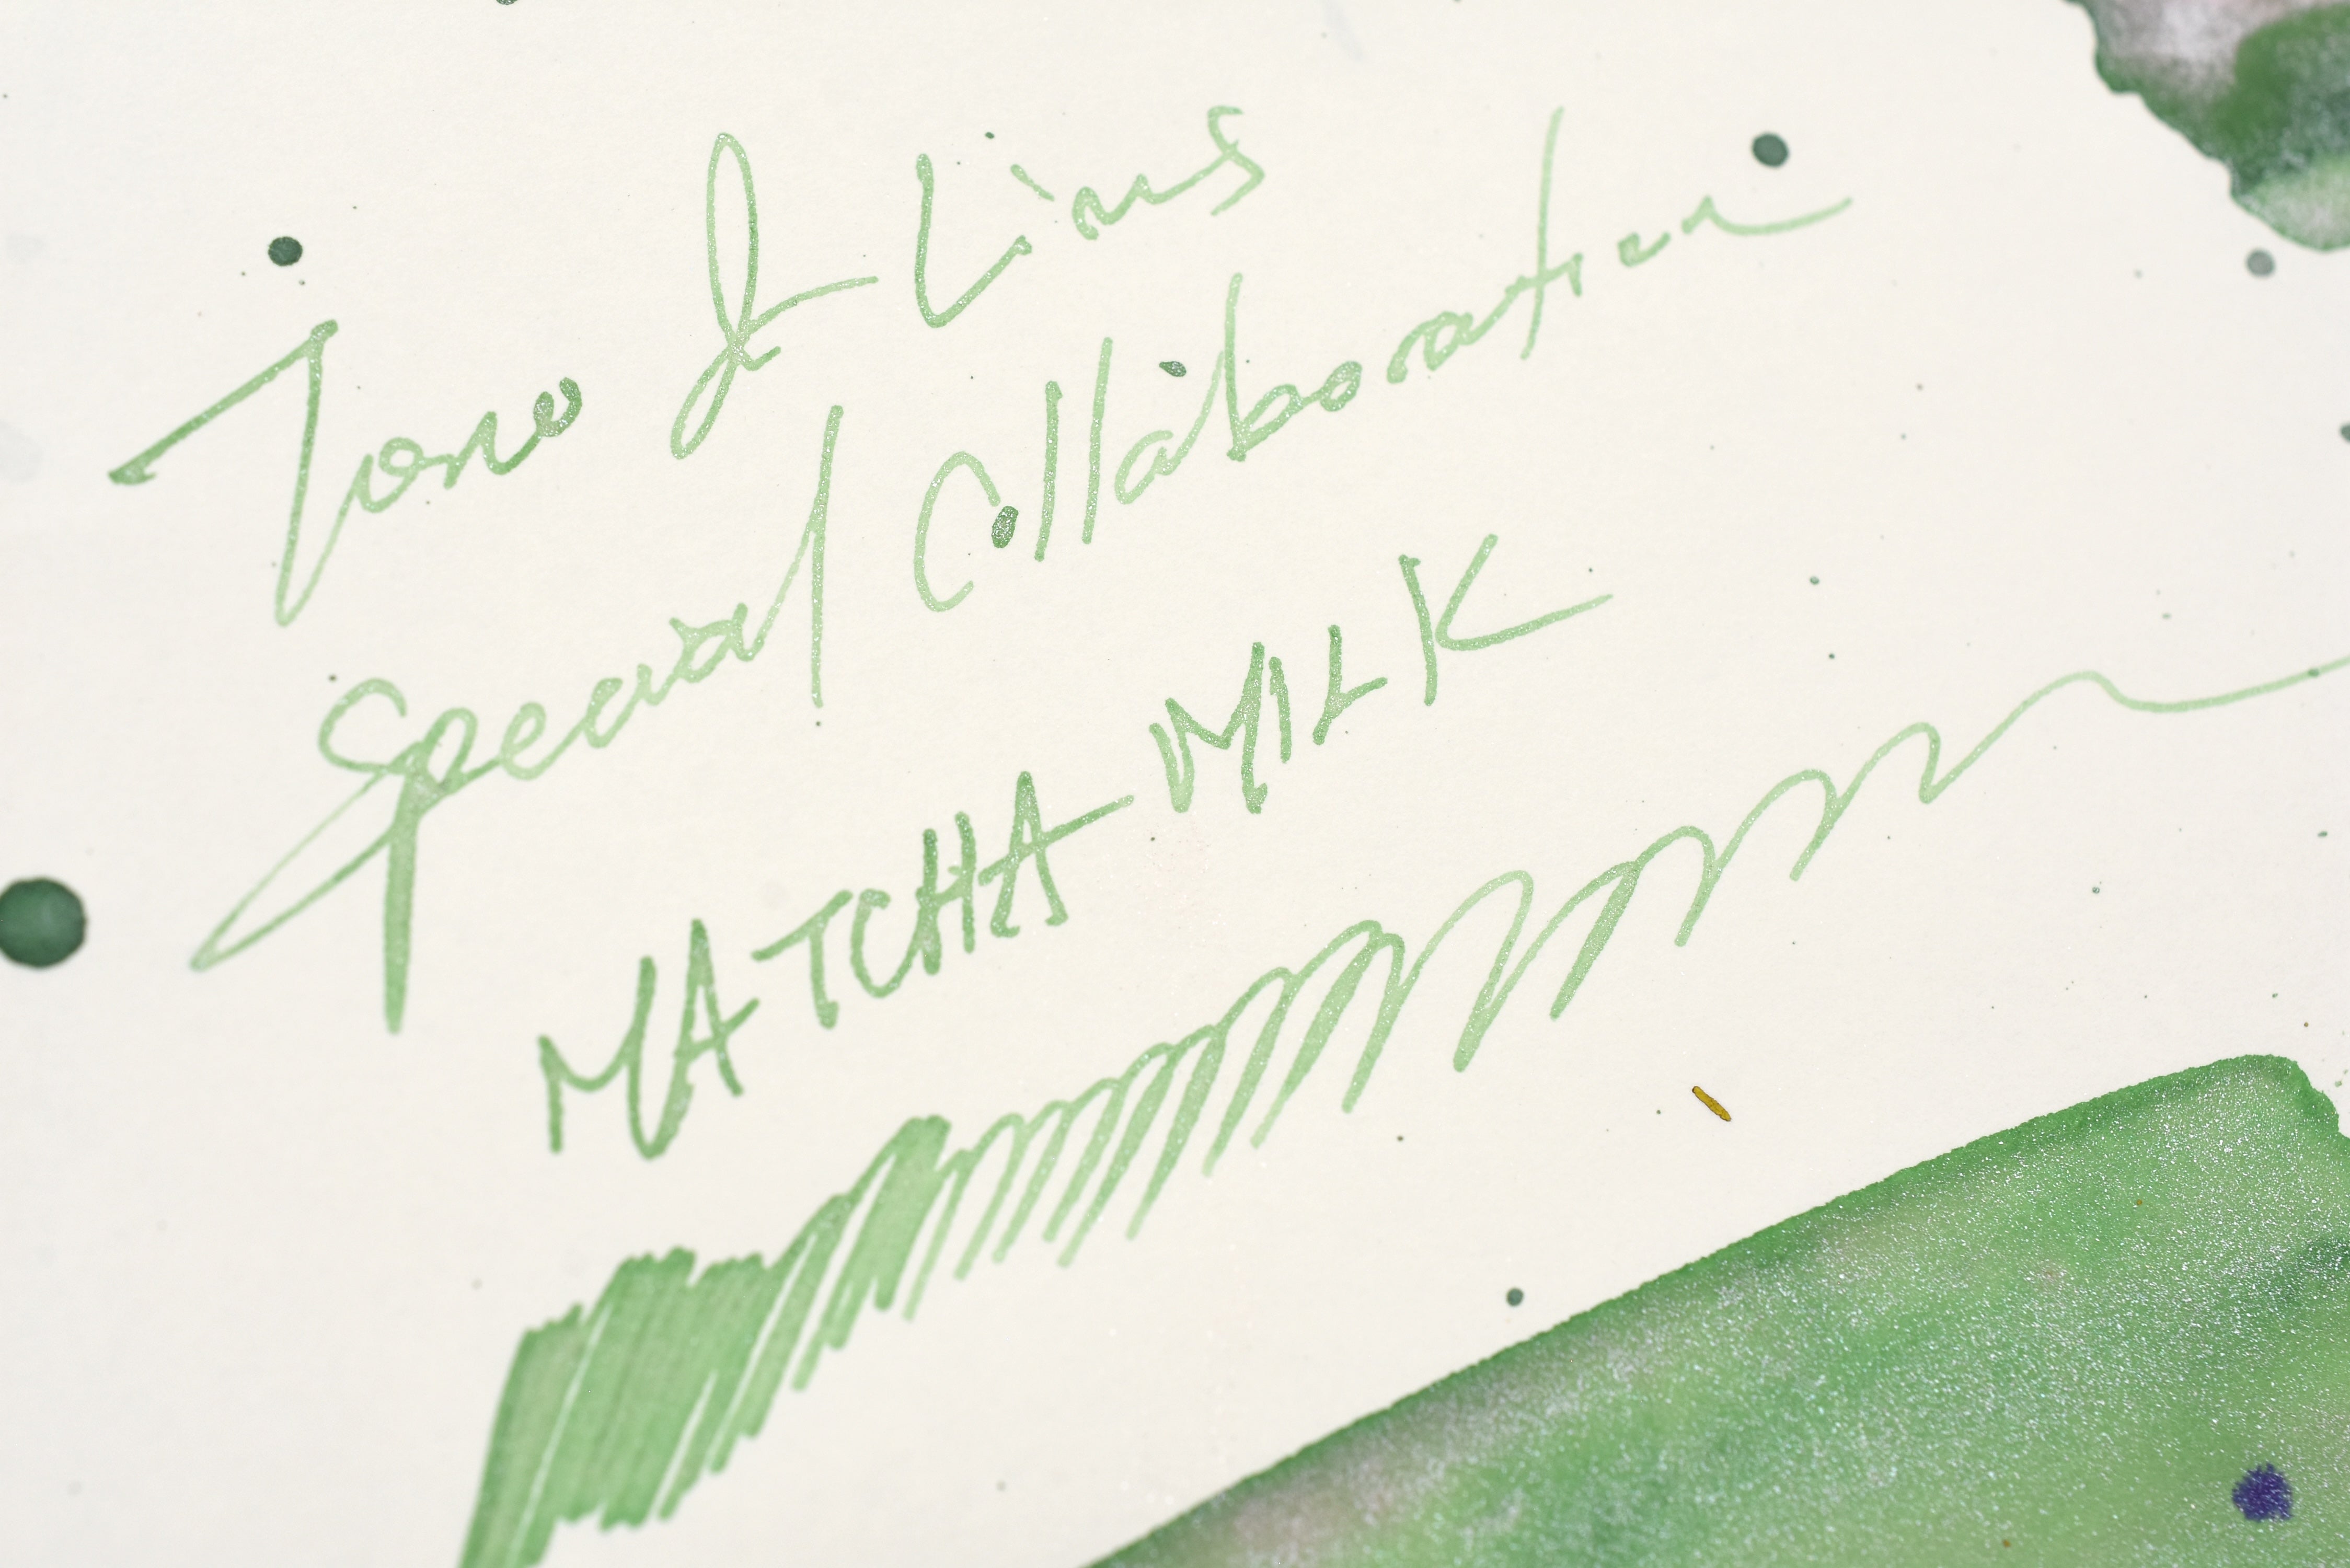 Tono & Lims
Special Collaboration
MATCHA MILK